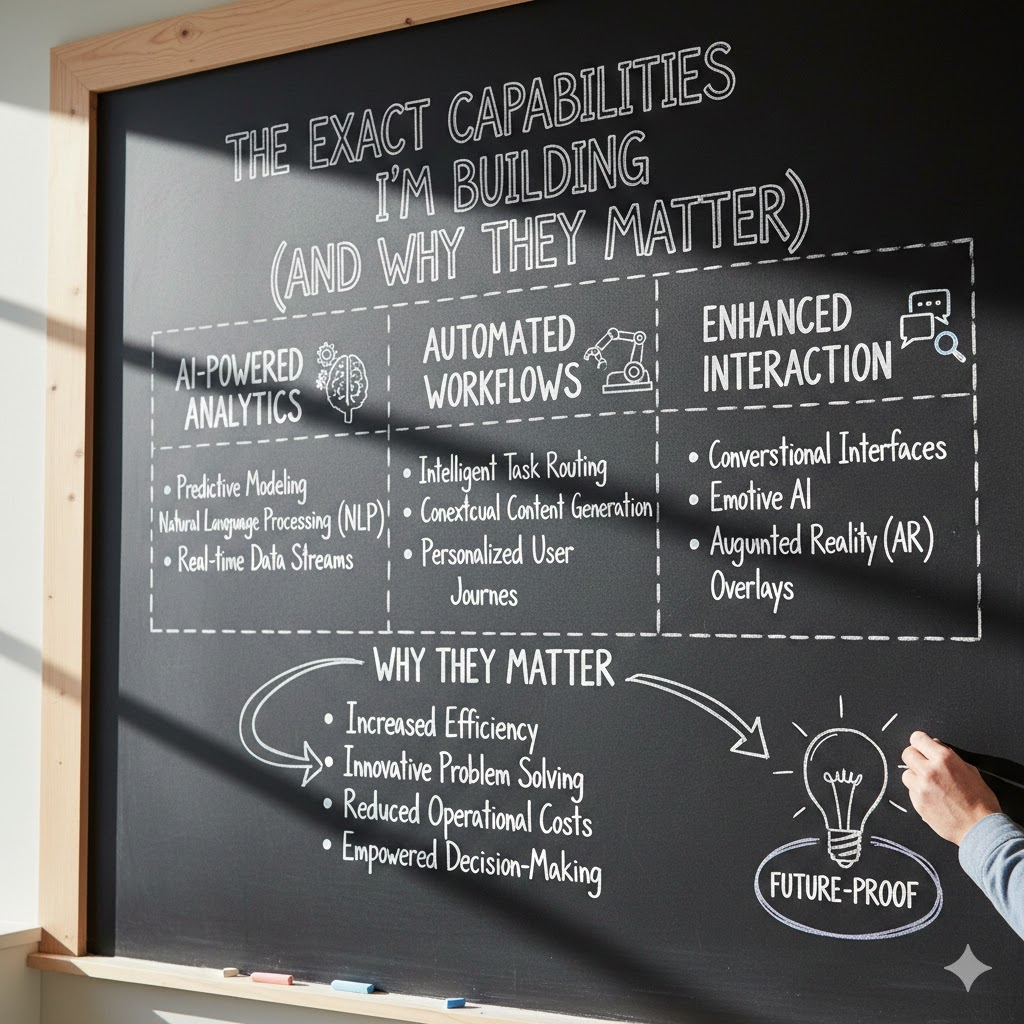 THE EXACT CAPABILITIES
I'M BUILDING
(AND WHY THEY MATTER)
AI-POWERED
ANALYTICS
• Predictive Modeling
Natural Language Processing (NLP)
• Real-time Data Streams
AUTOMATED
WORKFLOWS
• Intelligent Task Routing
• Conextcual Content Generation
• Personalized User
Journes
ENHANCED
INTERACTION
• Converstional Interfaces
• Emotive AI
• Auguinted Reality (AR)
Overlays
WHY THEY MATTER
• Increased Efficiency
• Innovative Problem Solving
• Reduced Operational Costs
• Empowered Decision-Making
FUTURE-PROOF